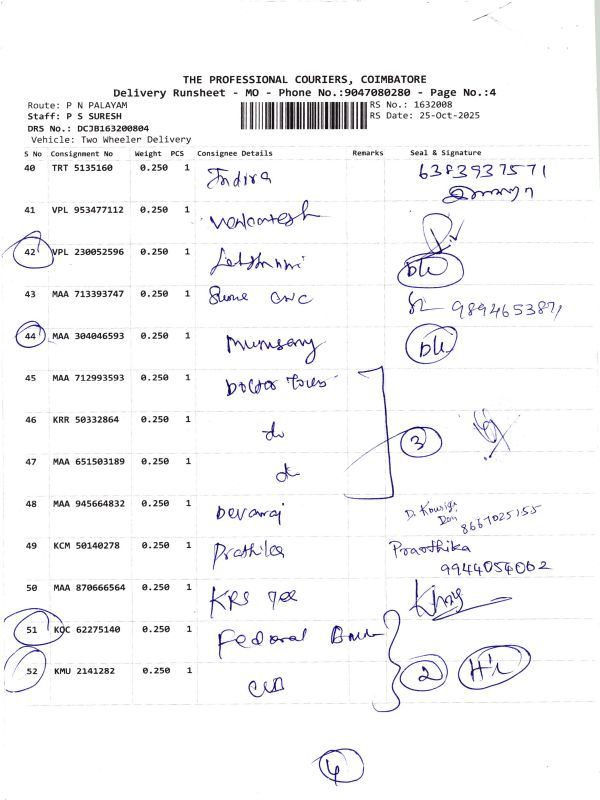 THE PROFESSIONAL COURIERS, COIMBATORE
Delivery Runsheet - MO - Phone No.:9047080280 - Page No.:4
Route: P N PALAYAM RS No.: 1632008
Staff: P S SURESH RS Date: 25-Oct-2025
DRS No.: DCJB163200804
Vehicle: Two Wheeler Delivery
S No Consignment No Weight PCS Consignee Details Remarks Seal & Signature
40 TRT 5135160 0.250 1 Indira 6383937571
41 VPL 953477112 0.250 1 Venkatesh
42 VPL 230052596 0.250 1
43 MAA 713393747 0.250 1 CNC 9894653871
44 MAA 304046593 0.250 1
45 MAA 712993593 0.250 1 Doctor
46 KRR 50332864 0.250 1 do 3
47 MAA 651503189 0.250 1 do
48 MAA 945664832 0.250 1 Devaraj 8667025155
49 KCM 50140278 0.250 1 Prathika Praothika
9944054002
50 MAA 870666564 0.250 1 KRS
51 KQC 62275140 0.250 1 Federal Bank
52 KMU 2141282 0.250 1 2
4